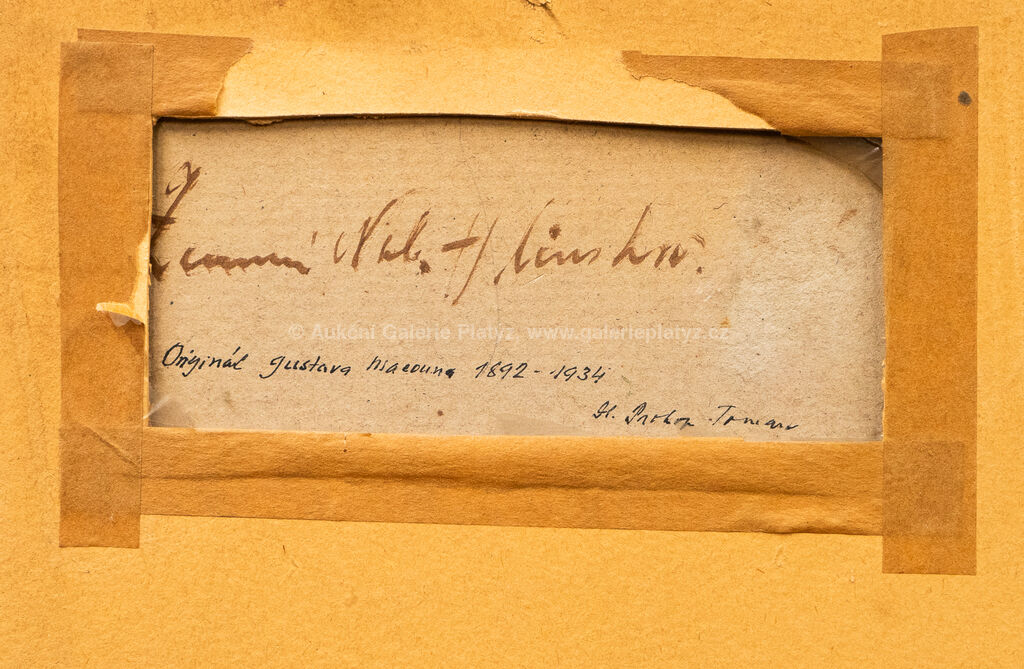 Zimní Nal.
© Aukční Galerie Platýz, www.galerieplatyz.cz
Originál Gustava Macouna 1892 - 1934
Prokop Toman